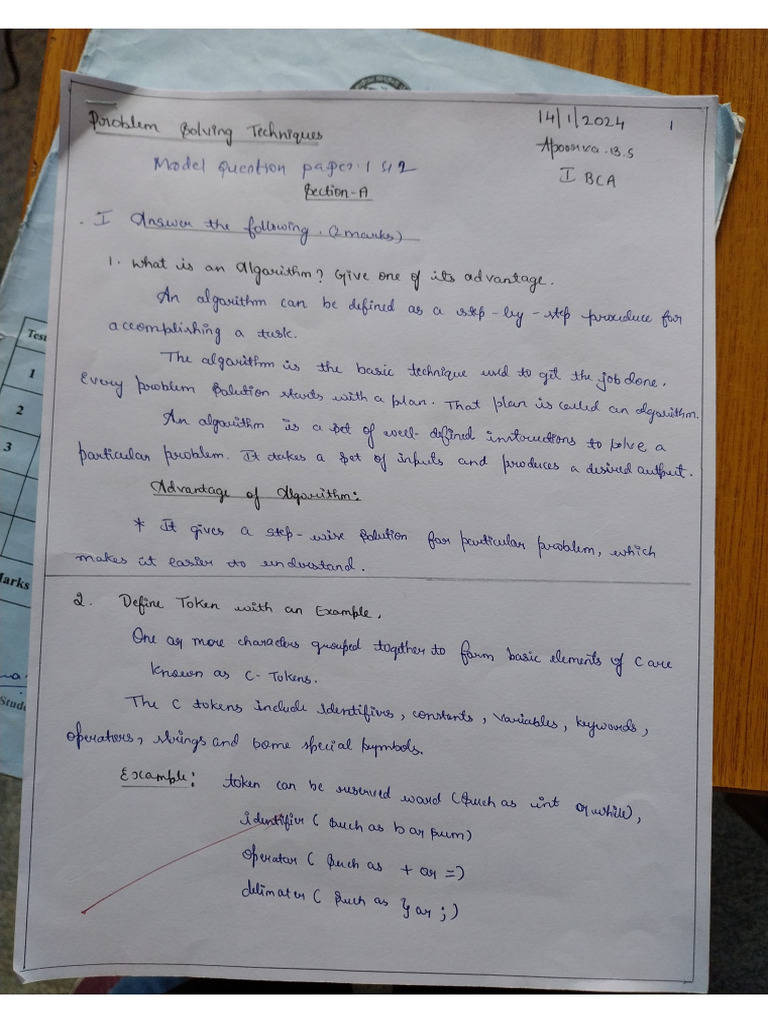 Problem Solving Techniques
14/1/2024
1
Apoorva.B.S
I BCA
Model Question paper 1 & 2
Section-A
I Answer the following. (2marks)
1. What is an Algorithm? Give one of its advantage.
An algorithm can be defined as a step-by-step procedure for
accomplishing a task.
The algorithm is the basic technique used to get the job done.
Every problem solution starts with a plan. That plan is called an algorithm.
An algorithm is a set of well-defined instructions to solve a
particular problem. It takes a set of inputs and produces a desired output.
Advantage of Algorithm:
* It gives a step-wise solution for particular problem, which
makes it easier to understand.
2. Define Token with an Example.
One or more characters grouped together to form basic elements of C are
known as C-Tokens.
The C tokens include identifiers, constants, variables, keywords,
operators, strings and some special symbols.
Example: token can be reserved word (such as int or while),
identifier (such as b or sum)
operator (such as + or =)
delimater (such as } or ;)
Test
1
2
3
Marks
Stude